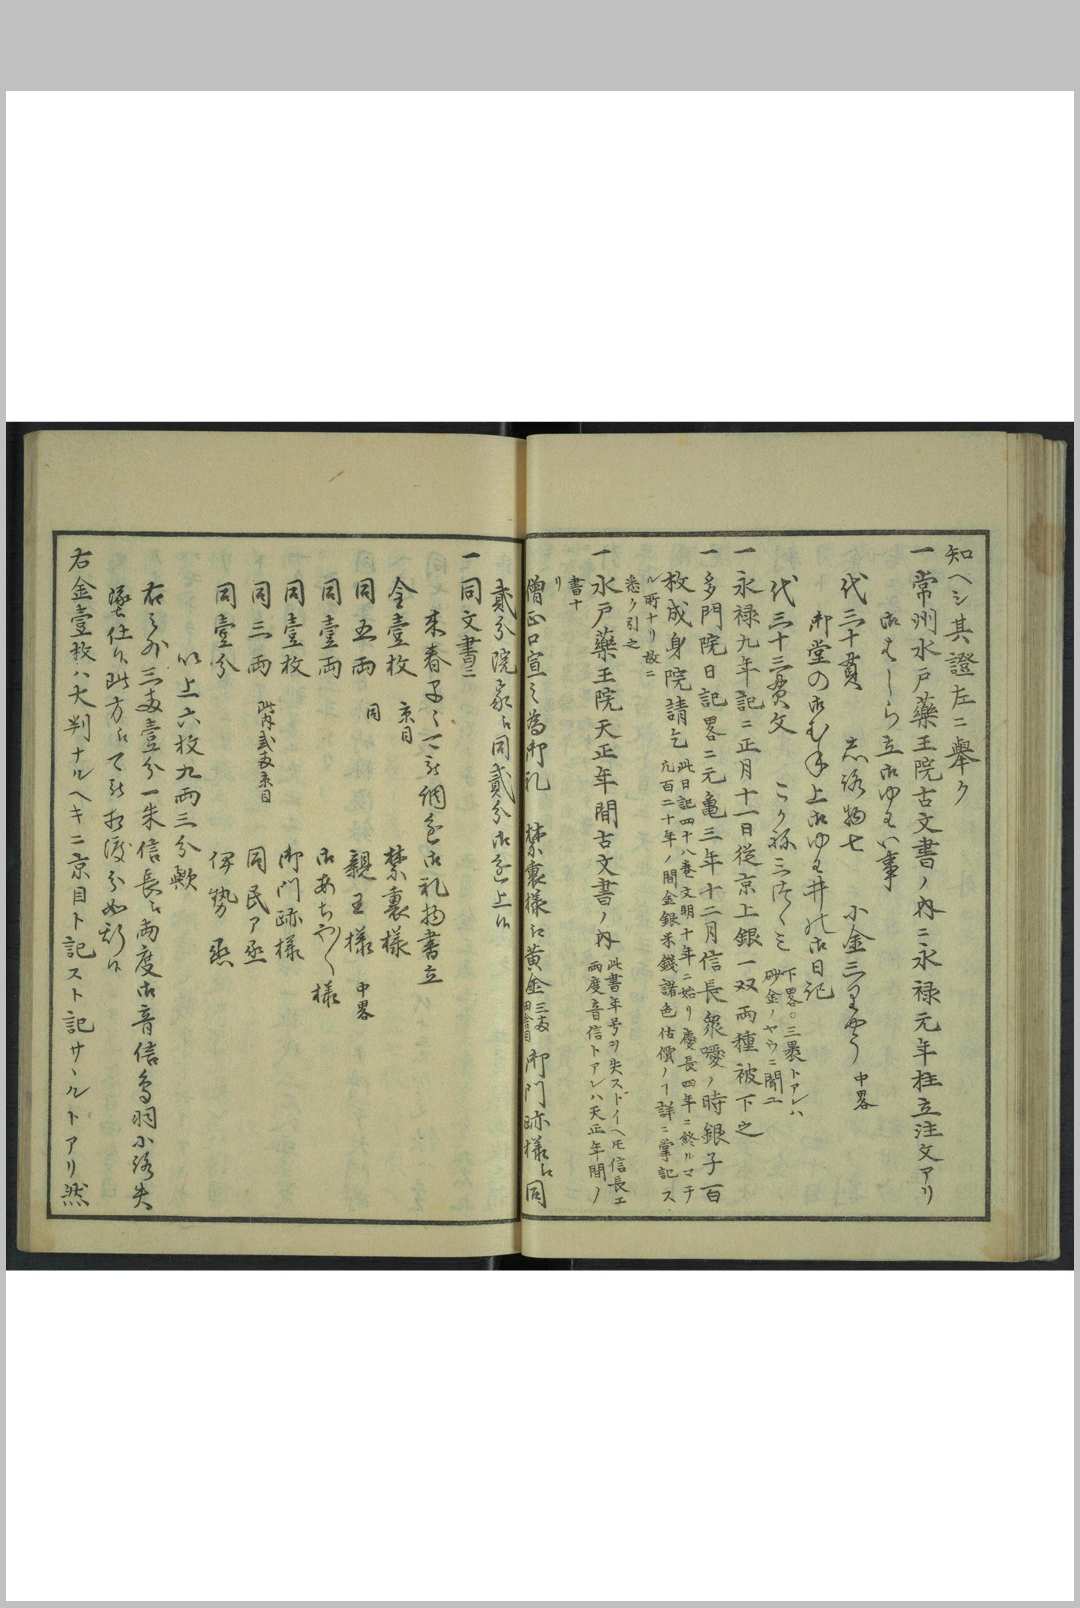 知ヘシ其證左ニ擧ク
一常州水戸藥王院古文書ノ内ニ永禄元年柱立注文アリ
御はしら立御ゆわい事
代三十貫 志路物七 小金三 中畧
御堂の御むね上御ゆわ井の御日記
代三十三貫文 こかね三
下畧○三裹トアレハ
砂金ノヤウニ聞ユ
一永禄九年記ニ正月十一日從京上銀一双両種被下之
一多門院日記畧ニ元亀三年十二月信長衆噯ノ時銀子百
枚成身院請乞
此日記四十八巻文明十年ニ始リ慶長四年ニ終ルマテ
九百二十年ノ間金銀米錢諸色估價ノ詳ニ掌記ス
ル所ナリ故ニ
悉ク引之
一水戸藥王院天正年間古文書ノ内
此書年号ヲ失スドイヘモ信長エ
両度音信トアレハ天正年間ノ
書ナ
リ
僧正口宣之為御礼 禁裏様江黄金三両 御門跡様江同
貳分院家江同貳分御進上候
一同文書ニ
来春 御礼物書立
金壹枚 京目 禁裏様
同五両 同 親王様 中畧
同壹両 御あちや〳〵様
同壹枚 御門跡様
同三両 此内弐両京目 同民ア丞
同壹分 伊勢
以上六枚九両三分歟
右之外三両壹分一朱信長江両度御音信鳥羽小路失
墜仕候此方にて
右金壹枚ハ大判ナルヘキニ京目ト記スト記サヽルトアリ然